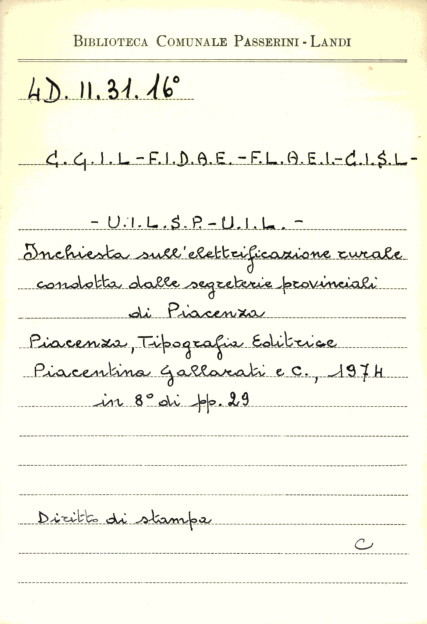 BIBLIOTECA COMUNALE PASSERINI - LANDI
4D. II. 31. 16°
C.G.I.L - F.I.D.A.E. - F.L.A.E.I. - C.I.S.L -
- U.I.L.S.P. - U.I.L. -
Inchiesta sull'elettrificazione rurale
condotta dalle segreterie provinciali
di Piacenza
Piacenza, Tipografia Editrice
Piacentina Gallarati e C., 1974
in 8° di pp. 29
Diritto di stampa
C